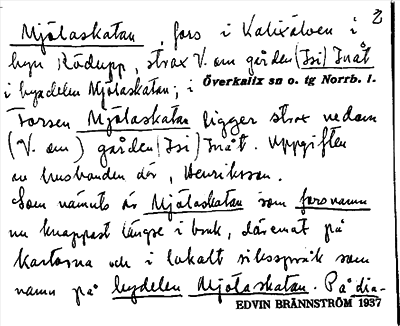 2
Mjölaskatan, fors i Kalixälven i
byn Rödupp, strax V. om gården (Isi) Inåt
i bydelen Mjölaskatan; i Överkalix sn o. tg Norrb. l.
Forsen Mjölaskatan ligger strax nedom
(V. om) gården (Isi) Inåt. Uppgiften
av husbonden där, Henriksson.
Som nämnts är Mjölaskatan som forsnamn
nu knappast längre i bruk, däremot på
kartorna och i lokalt riksspråk som
namn på bydelen Mjölaskatan. På dia-
EDVIN BRÄNNSTRÖM 1937